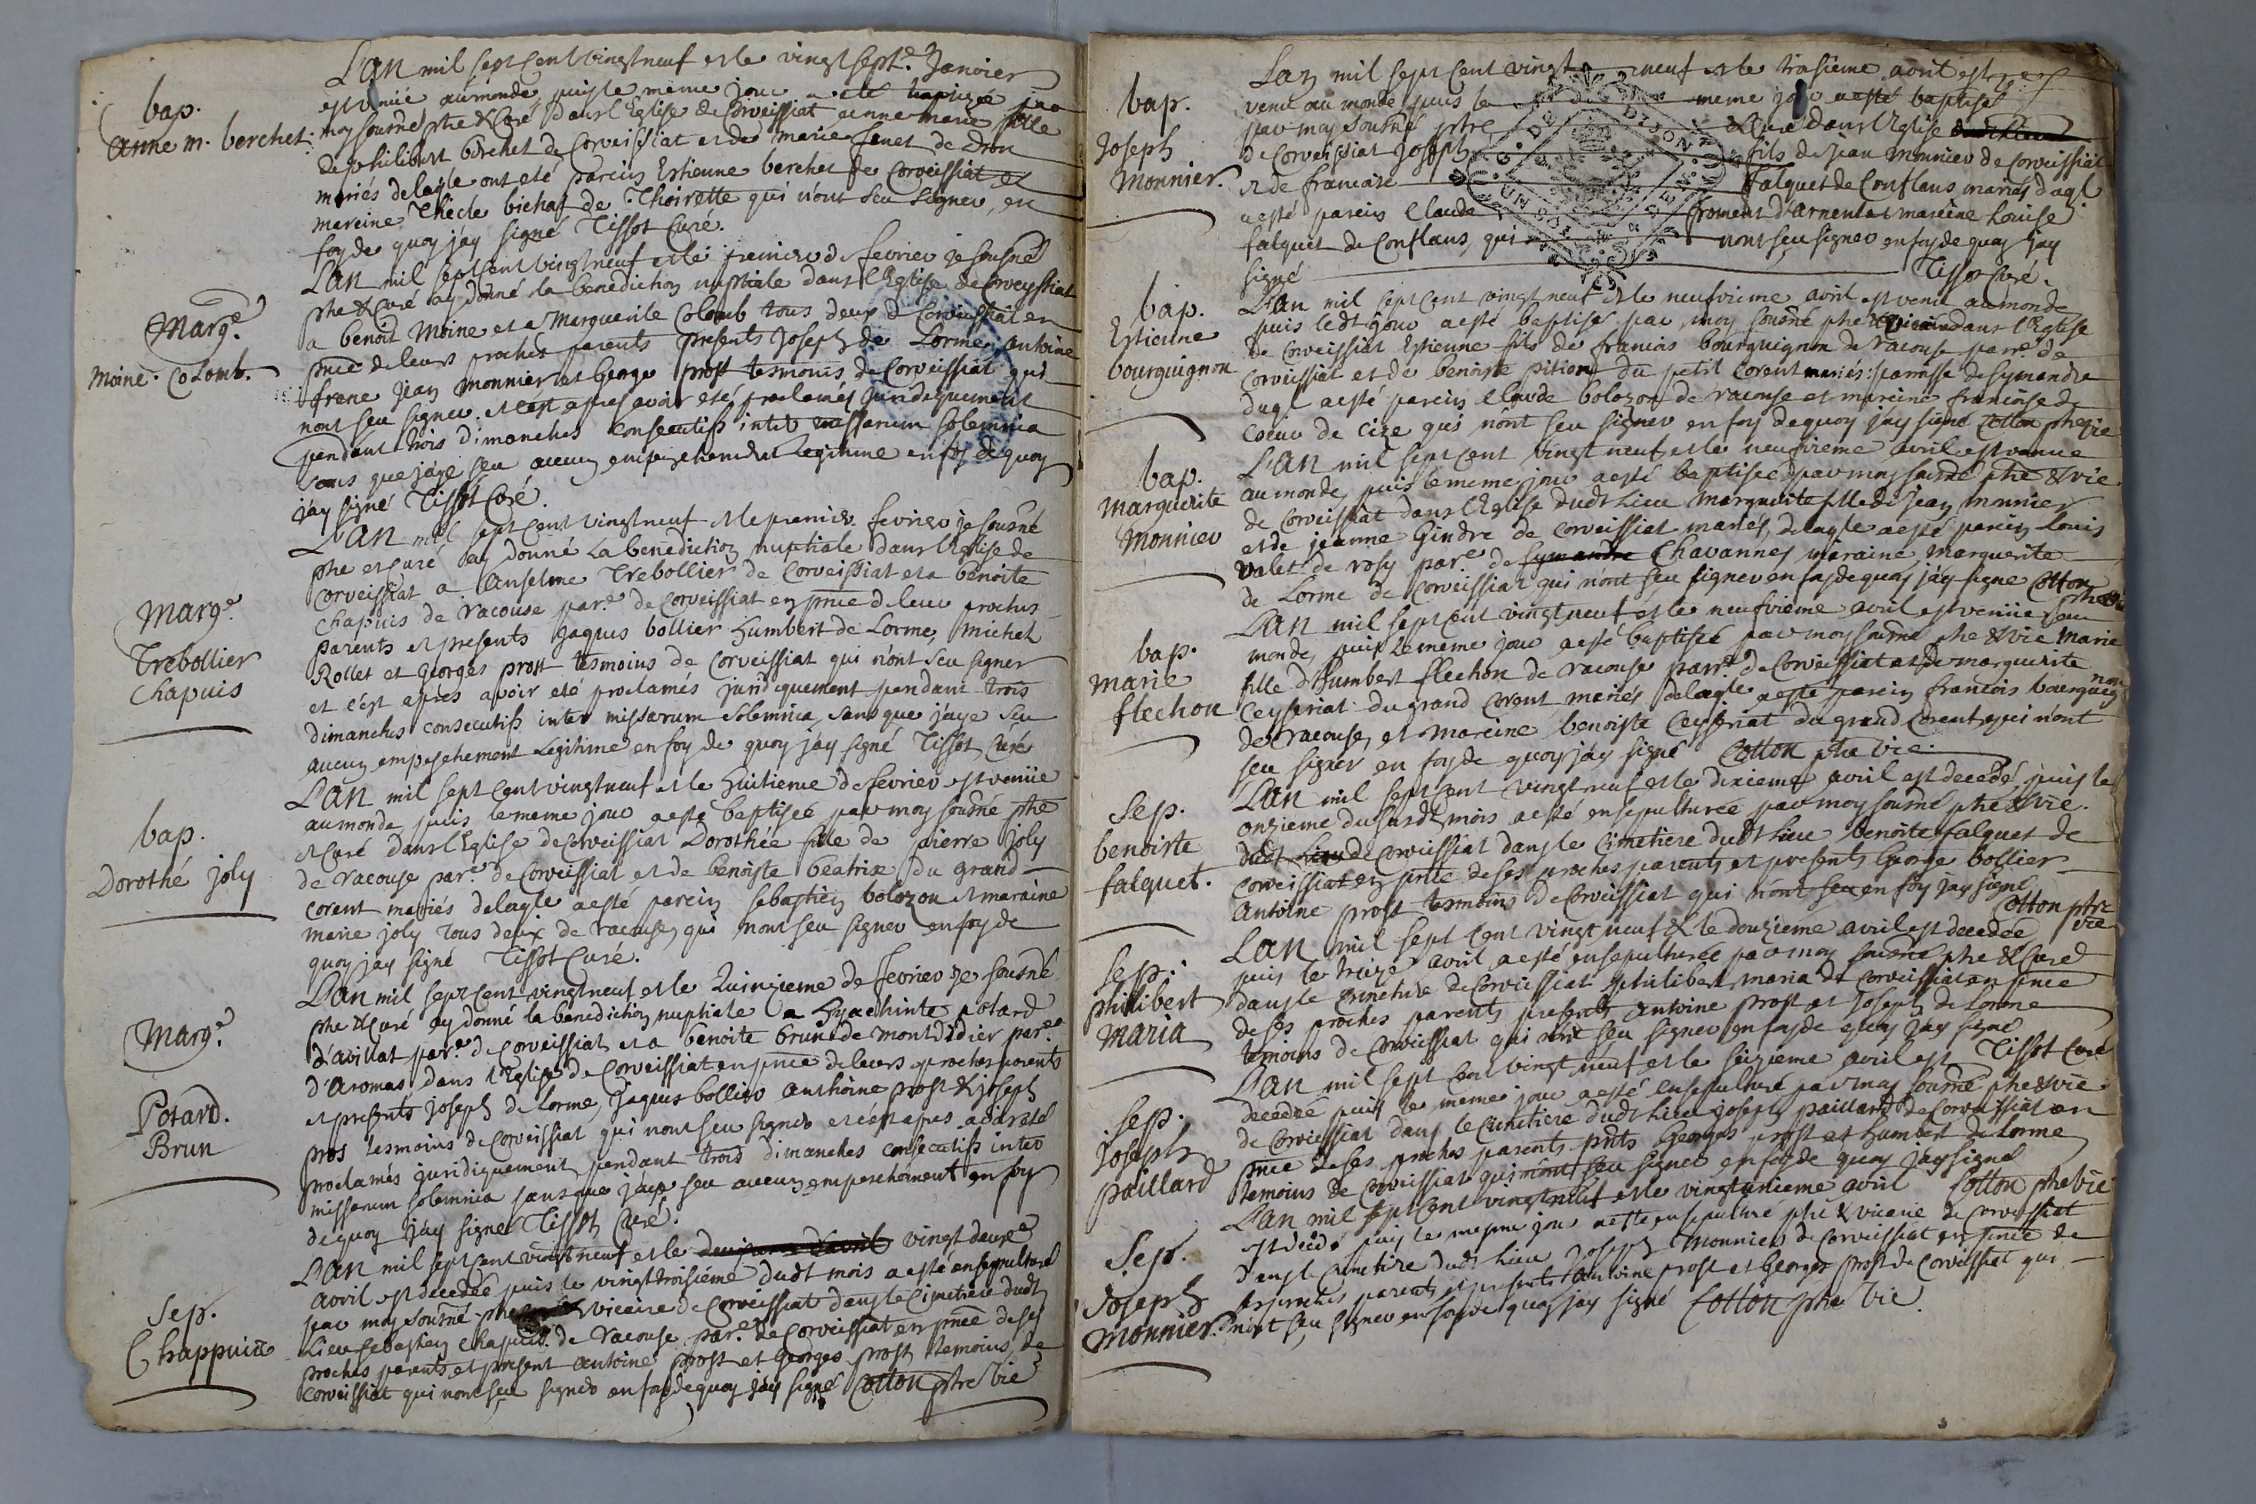 L'an mil sept cent vingt neuf et le vingt sept.e Janvier
bap.
anne m. berchet.
est venüe au monde puis le même jour a été baptizée par
moy sousné ptre & Curé dans l'Eglise de Corveissiat anne marie fille
de philibert berchet de Corveissiat et de marie
mariés delagle ont eté parein Estienne berchet de Corveissiat et
mareine Thiecle bichat de Thoirette qui n'ont seu signer, en
foy de quoy j'ay signé Tissot Curé.
L'an mil sept cent vingt neuf et le premier de fevrier je sousné
ptre & Curé ay donné la benediction nuptiale dans l'Eglise de Corveyssiat
marg.e
moine. Colomb.
a benoit Moine et a Marguerite Colomb tous deux de Corveissiat en
pnce de leurs proches parents presents Joseph de Lorme, antoine
frene Jean Monnier et George prost tesmoins de Corveissiat qui
nont seu signer et c'est apres avoir eté proclamés juridiquement
pendant trois dimanches consecutifs inter missarum solemnia
sans que jaye seu aucun empechement legitime en foy de quoy
j'ay signé Tissot Curé.
L'an mil sept cent vingt neuf et le premier fevrier je sousné
ptre et curé ay donné la benediction nuptiale dans l'Eglise de
marg.e
Trebollier
Chapuis
Corveissiat a Anselme Trebollier de Corveissiat et a benoite
Chapuis de racouse par.e de Corveissiat en pnce de leur proches
parents et presents Jaques bollier Humbert de Lorme, Michel
Rollet et Georges prost tesmoins de Corveissiat qui n'ont seu signer
et c'est apres avoir eté proclamés juridiquement pendant trois
dimanches consecutifs inter missarum solemnia, sans que j'aye seu
aucun empeschement legitime en foy de quoy j'ay signé Tissot Curé
L'an mil sept cent vingt neuf et le huitieme de fevrier est venüe
bap.
Dorothé joly
au monde puis le meme jour a esté baptisée par moy sousné ptre
et Curé dans l'Eglise de Corveissiat Dorothée fille de pierre Joly
de racouse par.e de Corveissiat et de benoiste beatrix du grand
corent mariés delagle a esté parein sebastien bolozon et maraine
marie joly tous deux de racouse, qui nont seu signer en foy de
quoy jay signé Tissot Curé.
L'an mil sept cent vingt neuf et le quinzieme de fevrier je sousné
marg.e
Potard.
Brun
ptre & Curé ay donné la benediction nuptiale a Hyachinte potard
d'avillat par.e de Corveissiat et a benoite brun de montdidier par.e
d'Aromas dans l'Eglise de Corveissiat en pnce de leurs proches parents
et presents joseph de Lorme, Jaques bollier anthoine prost & joseph
pros tesmoins de Corveissiat qui nont seu signer et c'est apres
proclamés juridiquement, pendant trois dimanches consecutifs inter
missarum solemnia sans que j'aye seu aucun empeschement en foy
de quoy jay signé Tissot Curé.
L'an mil sept cent vingt neuf et le vingt deuxe
Sep.
Chappuis
avril est decedée puis le vingt troisiéme dudt mois a esté ensepulturé
par moy sousné ptre vicaire de Corveissiat dans le Cimetiere dudt
Lieu sebastien Chapuis de racouse par.e de Corveissiat en pnce de ses
proches parents et present antoine prost et Georges prost temoins, de
Corveissiat qui nont seu signer en foy de quoy j'ay signé Cotton ptre vic
L'an mil sept cent vingt neuf et le troisieme avril est
bap.
Joseph
Monnier.
venu au monde puis le meme jour a esté baptisé
par moy sousné ptre & Curé dans l'Eglise
de Corveissiat Joseph fils de Jean Monnier de Corveissiat
et de francoise falquet de Conflans mariés dagl
a esté parein Claude froment d'arnent et mareine Louise
falquet de Conflans, qui nont seu signer en foy de quoy jay
signé Tissot Curé.
bap.
Estienne
bourguignon
L'an mil sept cent vingt neuf et le neufvieme avril est venu au monde
puis ledt jour a esté baptisé par moy sousné ptre & vicaire dans l'Eglise
de Corveissiat Estienne fils de francois bourguignon de racouse parr.e de
Corveissiat et de benoiste pition du petit Corent mariés: parroisse de symandre
dagl a esté parein Claude bolozon de racouse et mareine francoise de
coeur de cize qui n'ont seu signer en foy de quoy j'ay signé Cotton ptre vic
bap.
marguerite
Monnier
L'an mil sept cent vingt neuf et le neufvieme avril est venue
au monde, puis le meme jour a esté baptisée par moy sousné ptre & vic
de Corveissiat dans l'Eglise dudt Lieu Marguerite fille de jean monnier
et de jeanne Gindre de Corveissiat mariés, delagle a esté parein Louis
valet de rosy par.e de symandre Chavannes maraine Marguerite
de Lorme de Corveissiat qui n'ont seu signer en foy de quoy j'ay signé Cotton
ptre vic
bap.
marie
flechon
L'an mil sept cent vingt neuf et le neufvieme avril est venüe au
monde, puis le meme jour a esté baptisée par moy sousné ptre & vic marie
fille d'Humbert flechon de racouse parr.e de Corveissiat et de marguerite
Ceyseriat du grand Corent mariés delagle a esté parein francois bourguig
non
de racouse, et mareine benoiste Ceyseriat du grand Corent, qui n'ont
seu signer en foy de quoy j'ay signé Cotton ptre vic.
Sep.
benoiste
falquet.
L'an mil sept cent vingt neuf et le dixieme avril est decedé puis le
onzieme du susdt mois a esté ensepulturée par moy sousné ptre & vic.
dudt Lieu de Corveissiat dans le Cimetiere dudt Lieu benoite falquet de
Corveissiat en pnce de ses proches parents et presents George bollier
Antoine prost tesmoins de Corveissiat qui n'ont seu en foy jay signé
Cotton ptre
vic
Sep.
philibert
maria
L'an mil sept cent vingt neuf & le douzieme avril est decedée
puis le treize avril a esté ensepulturée par moy sousné ptre & Curé
dans le Cimetiere de Corveissiat philibert maria de Corveissiat en pnce
de ses proches parents presents Antoine prost et Joseph de Lorme
temoins de Corveissiat qui nont seu signer en foy de quoy jay signé
Tissot Curé
Sep.
Joseph
paillard
L'an mil sept cent vingt neuf et le seizieme avril est
decedée puis le meme jour a esté ensepulturé par moy sousné ptre & vic
de Corveissiat dans le Cimetiere dudt Lieu joseph paillard de Corveissiat en
pnce de ses proches parents pnts Georges prost et Humbert de Lorme
temoins de Corveissiat qui n'ont seu signer en foy de quoy jay signé
Cotton ptre vic
Sep.
Joseph
monnier.
L'an mil sept cent vingt neuf et le vingt unieme avril
est decedé puis le meme jour a esté ensepulturé ptre & vicaire de Corveissiat
dans le Cimetiere dudt Lieu Joseph Monnier de Corveissiat en pnce de
ses proches parents et presents Antoine prost et Georges prost de Corveissiat qui
n'ont seu signer en foy de quoy jay signé Cotton ptre vic.